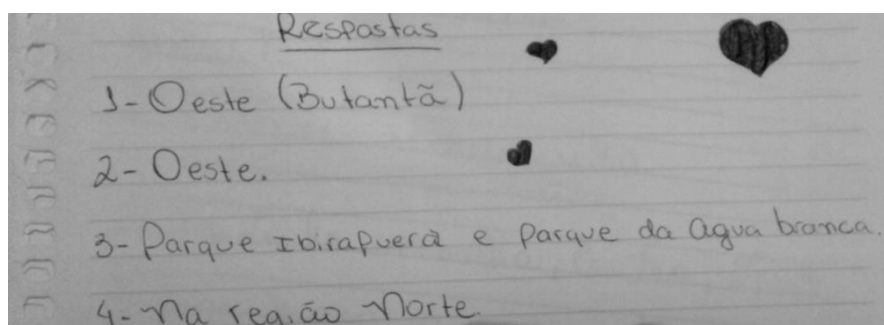 Respostas
1- Oeste (Butantã)
2- Oeste.
3- Parque Ibirapuera e Parque da Agua branca.
4- Na região Norte.